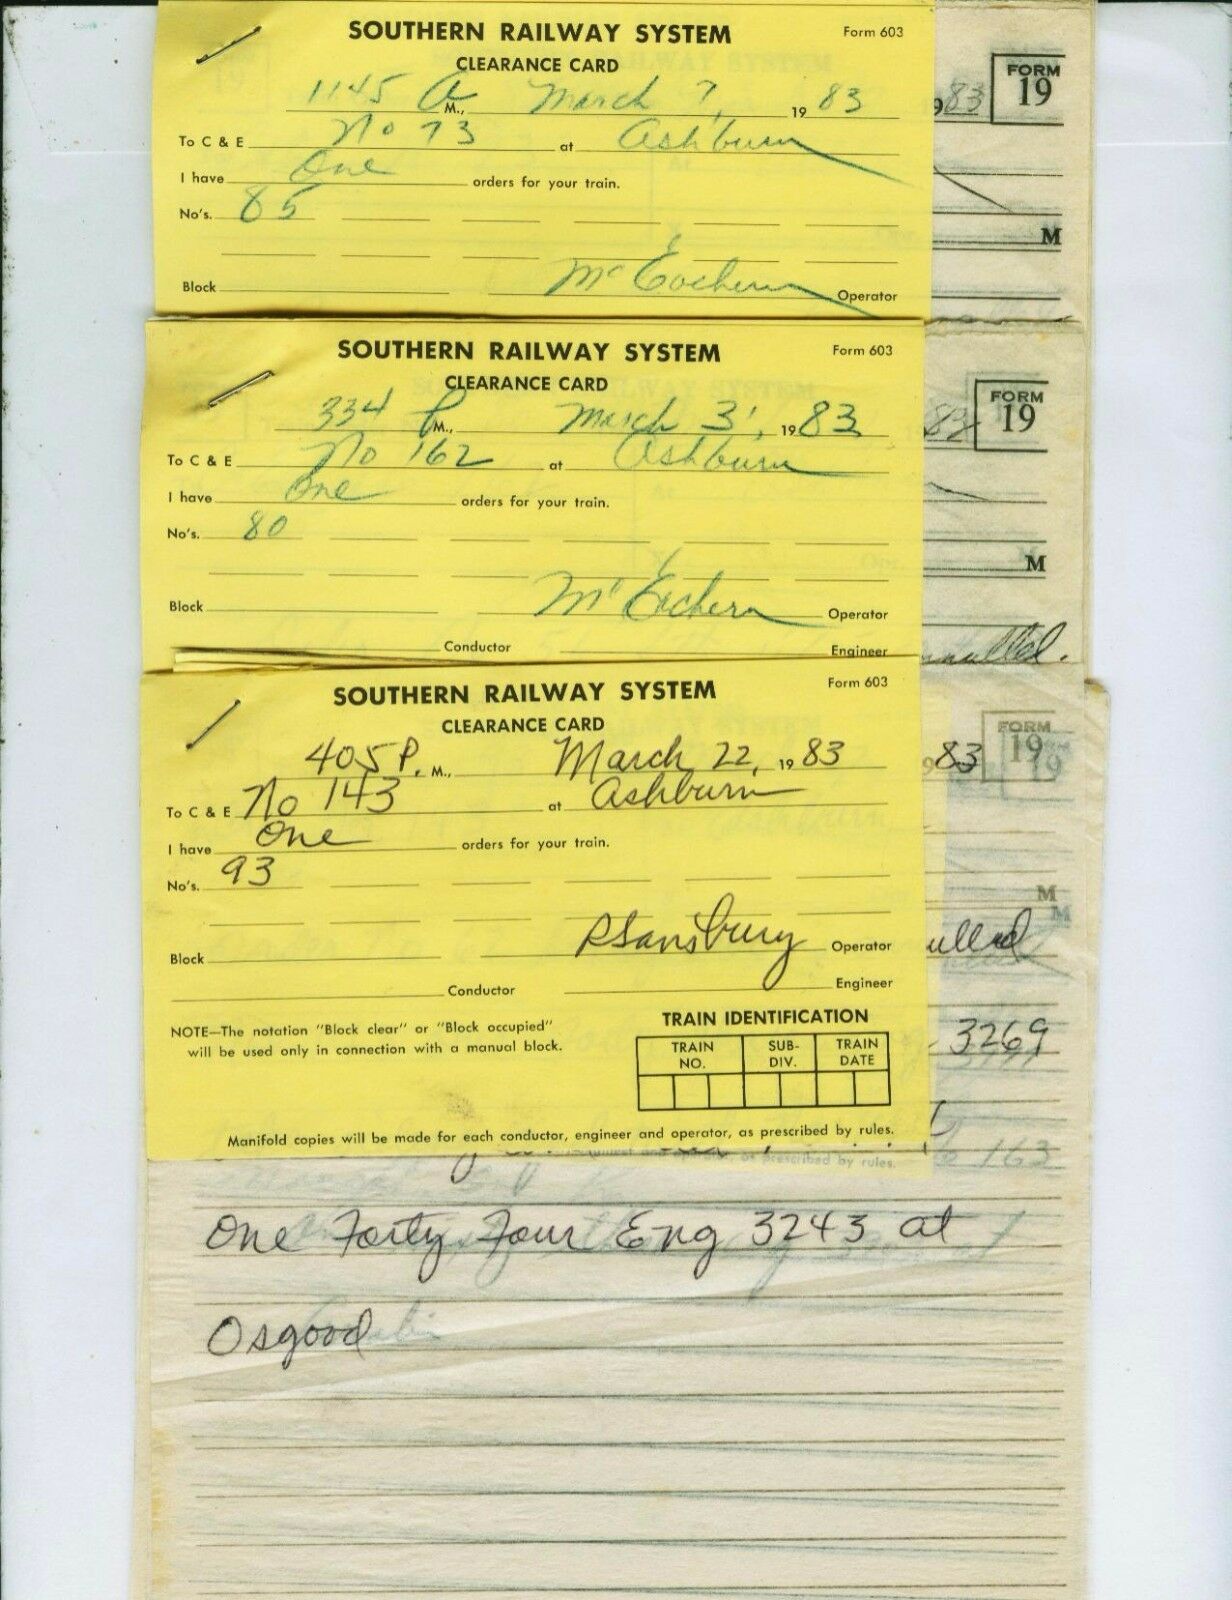 SOUTHERN RAILWAY SYSTEM Form 603
CLEARANCE CARD
1145 A M., March 7, 19 83
To C & E No 73 at Ashburn
I have One orders for your train.
No's. 85
Block McEachern Operator
83 FORM 19
M
SOUTHERN RAILWAY SYSTEM Form 603
CLEARANCE CARD
334 P M., March 31, 19 83
To C & E No 162 at Ashburn
I have One orders for your train.
No's. 80
Block McEachern Operator
Conductor Engineer
83 FORM 19
M
nulled.
SOUTHERN RAILWAY SYSTEM Form 603
CLEARANCE CARD
405 P. M., March 22, 19 83
To C & E No 143 at Ashburn
I have One orders for your train.
No's. 93
Block RSansbury Operator
Conductor Engineer
NOTE—The notation "Block clear" or "Block occupied"
will be used only in connection with a manual block.
TRAIN IDENTIFICATION
TRAIN NO. SUB-DIV. TRAIN DATE
Manifold copies will be made for each conductor, engineer and operator, as prescribed by rules.
983 FORM 19
M
ulled
3269
163
One Forty Four Eng 3243 at
Osgood